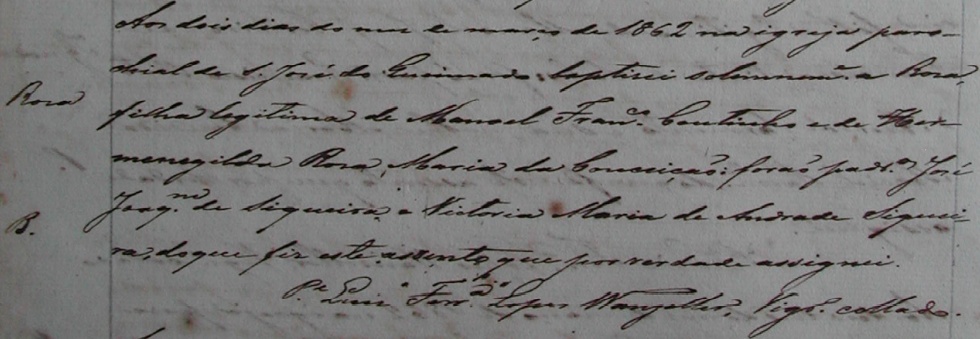 Aos dois dias do mez de março de 1862 na igreja paro-
chial de S. José do Queimado, baptisei solemnemᵉ. a Rosa,
Rosa
filha legitima de Manoel Franᶜᵒ. Coutinho e de Her-
menegilda Rosa Maria da Conceição: forão padrᵒˢ José
Joaqᵐ. de Siqueira, e Victoria Maria de Andrade Siquei-
B.
ra, do que fiz este assento que por verdade assignei.
Pᵉ. Luiz Lopes Wanzeller, Vigrᵒ. collado.